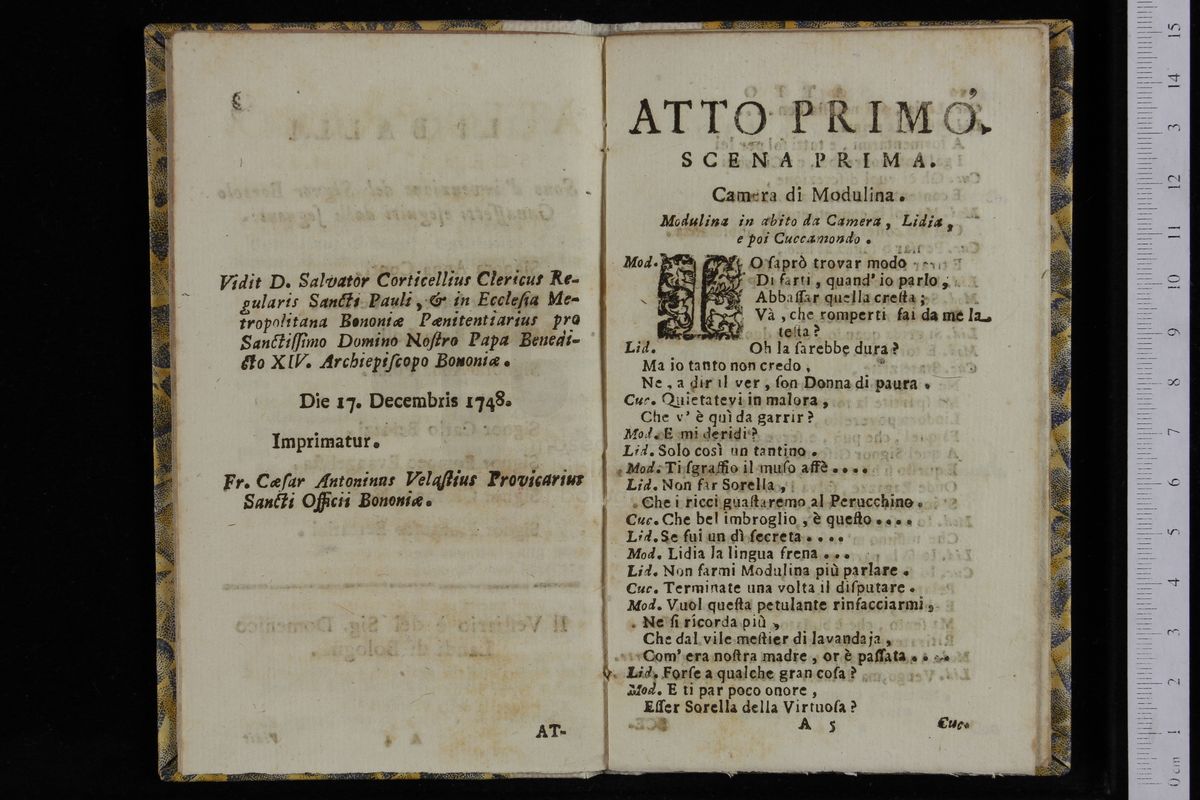 Vidit D. Salvator Corticellius Clericus Re-
gularis Sancti Pauli, & in Ecclesia Me-
tropolitana Bononiæ Pænitentiarius pro
Sanctissimo Domino Nostro Papa Benedi-
cto XIV. Archiepiscopo Bononiæ.
Die 17. Decembris 1748.
Imprimatur.
Fr. Cæsar Antoninus Velastius Provicarius
Sancti Officii Bononiæ.
AT-
ATTO PRIMO.
SCENA PRIMA.
Camera di Modulina.
Modulina in abito da Camera, Lidia,
e poi Cuccamondo.
Mod. IO saprò trovar modo
Di farti, quand' io parlo,
Abbassar quella cresta;
Và, che romperti fai da me la
testa?
Lid. Oh la sarebbe dura?
Ma io tanto non credo,
Ne, a dir il ver, son Donna di paura.
Cuc. Quietatevi in malora,
Che v' è quì da garrir?
Mod. E mi deridi?
Lid. Solo così un tantino.
Mod. Ti sgraffio il muso affè....
Lid. Non far Sorella,
Che i ricci guastaremo al Perucchino.
Cuc. Che bel imbroglio, è questo....
Lid. Se fui un dì secreta....
Mod. Lidia la lingua frena...
Lid. Non farmi Modulina più parlare.
Cuc. Terminate una volta il disputare.
Mod. Vuol questa petulante rinfacciarmi,
Ne si ricorda più,
Che dal vile mestier di lavandaja,
Com' era nostra madre, or è passata....
Lid. Forse a qualche gran cosa?
Mod. E ti par poco onore,
Esser Sorella della Virtuosa?
A 5 Cuc.
0 cm 1 2 3 4 5 6 7 8 9 10 11 12 13 14 15